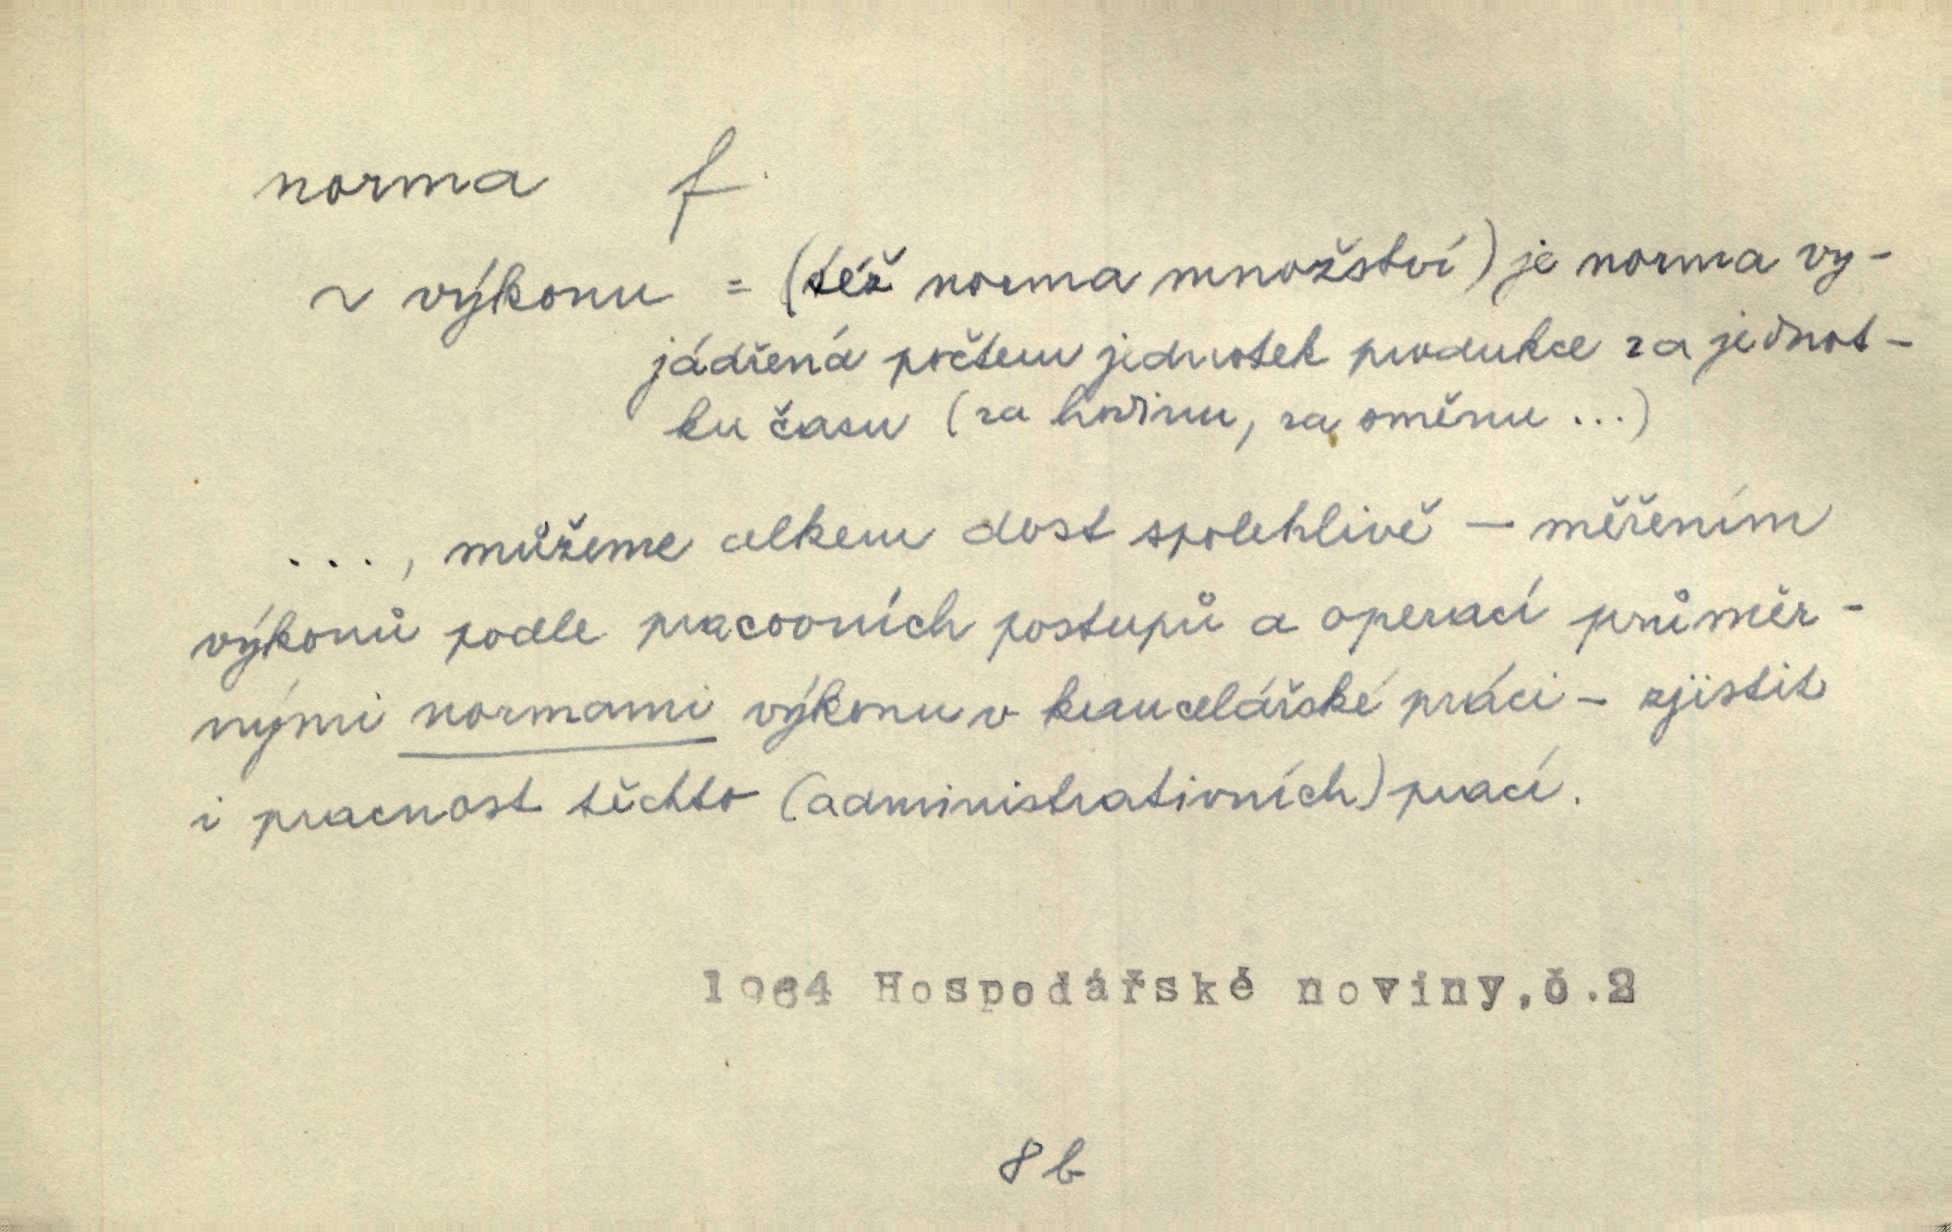 norma f.
~ výkonu = (též norma množství) je norma vy-
jádřená počtem jednotek produkce za jednot-
ku času (za hodinu, za směnu ...)
..., můžeme celkem dost spolehlivě – měřením
výkonů podle pracovních postupů a operací průměr-
nými normami výkonu v kancelářské práci – zjistit
i pracnost těchto (administrativních) prací.
1964 Hospodářské noviny,č.2
8b